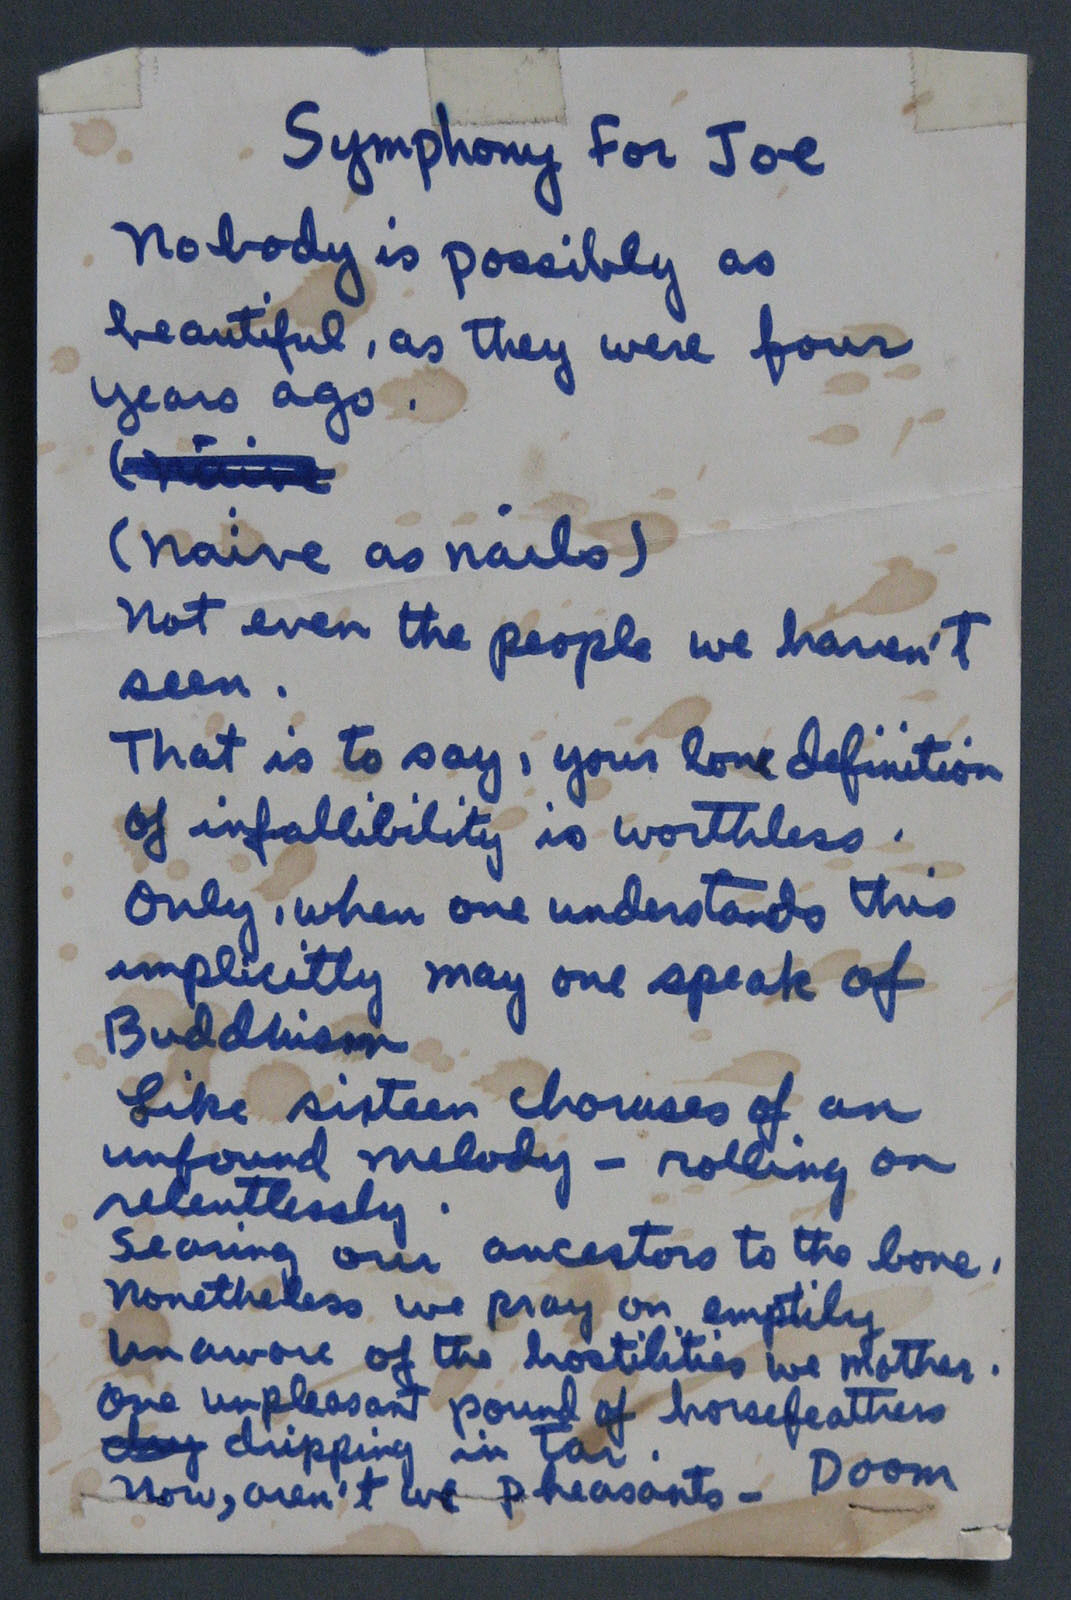 Symphony For Joe
Nobody is possibly as
beautiful, as they were four
years ago.
(
(naive as nails)
Not even the people we haven't
seen.
That is to say, your lone definition
of infallibility is worthless.
Only, when one understands this
implicitly may one speak of
Buddhism
Like sixteen choruses of an
unfound melody - rolling on
relentlessly.
Searing our ancestors to the bone.
Nonetheless we pray on emptily
Unaware of the hostilities we mother.
One unpleasant pound of horsefeathers
dripping in Tar.
Now, aren't we pheasants - Doom